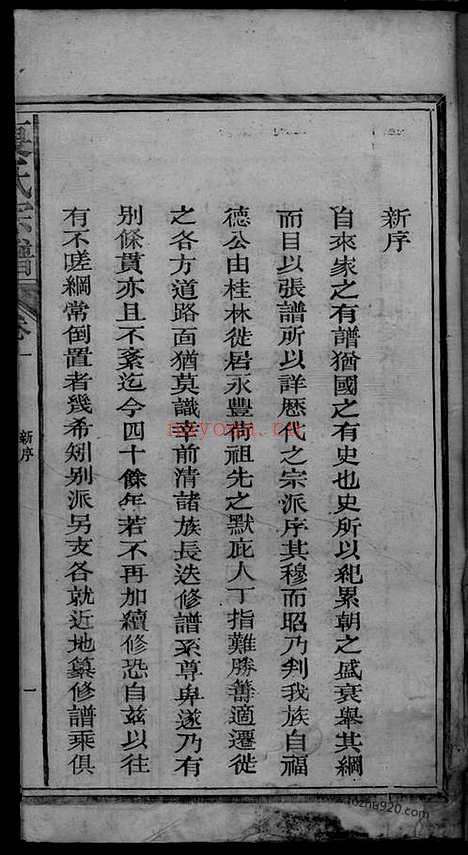 新序
自來家之有譜猶國之有史也史所以紀累朝之盛衰舉其綱
而目以張譜所以詳歷代之宗派序其穆而昭乃判我族自福
德公由桂林徙居永豐荷祖先之默庇人丁指難勝籌適遷徙
之各方道路面猶莫識幸前清諸族長迭修譜系尊卑遂乃有
別條貫亦且不紊迄今四十餘年若不再加續修恐自茲以往
有不嗟綱常倒置者幾希矧別派另支各就近地纂修譜乘俱
氏宗譜
卷一
新序
一